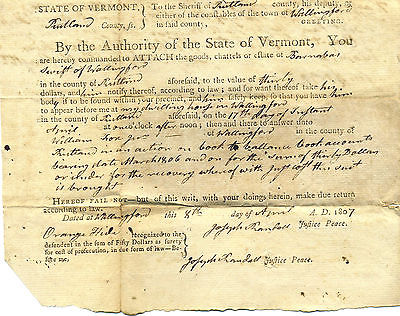 STATE OF VERMONT, To the Sheriff of Rutland county, his deputy, or
Rutland County, ss. either of the constables of the town of Wallingford
in said county, GREETING.
By the Authority of the State of Vermont, You
are hereby commanded to ATTACH the goods, chattels or estate of Barnabas
Swift of Wallingford
in the county of Rutland aforesaid, to the value of thirty
dollars, and him notify thereof, according to law; and for want thereof, his
body, if to be found within your precinct, and him safely keep, so that you have him
to appear before me at my dwelling house in Wallingford
in the county of Rutland aforesaid, on the 17th day of Instant
April at one o'clock after noon; then and there to answer unto
William Fox of Wallingford in the county of
Rutland in an action on book to ballance book accounts
bearing date March 1806 and on for the sum of thirty Dollars
or under for the recovery whereof with just cost this suit
is brought
HEREOF FAIL NOT—but of this writ, with your doings herein, make due return
according to law.
Dated at Wallingford this 8th day of April A. D. 1807
Orange Hide recognized to the Joseph Randall Justice Peace.
defendent in the sum of Fifty Dollars as surety
for cost of prosecution, in due form of law—Be-
fore me. Joseph Randall Justice Peace.